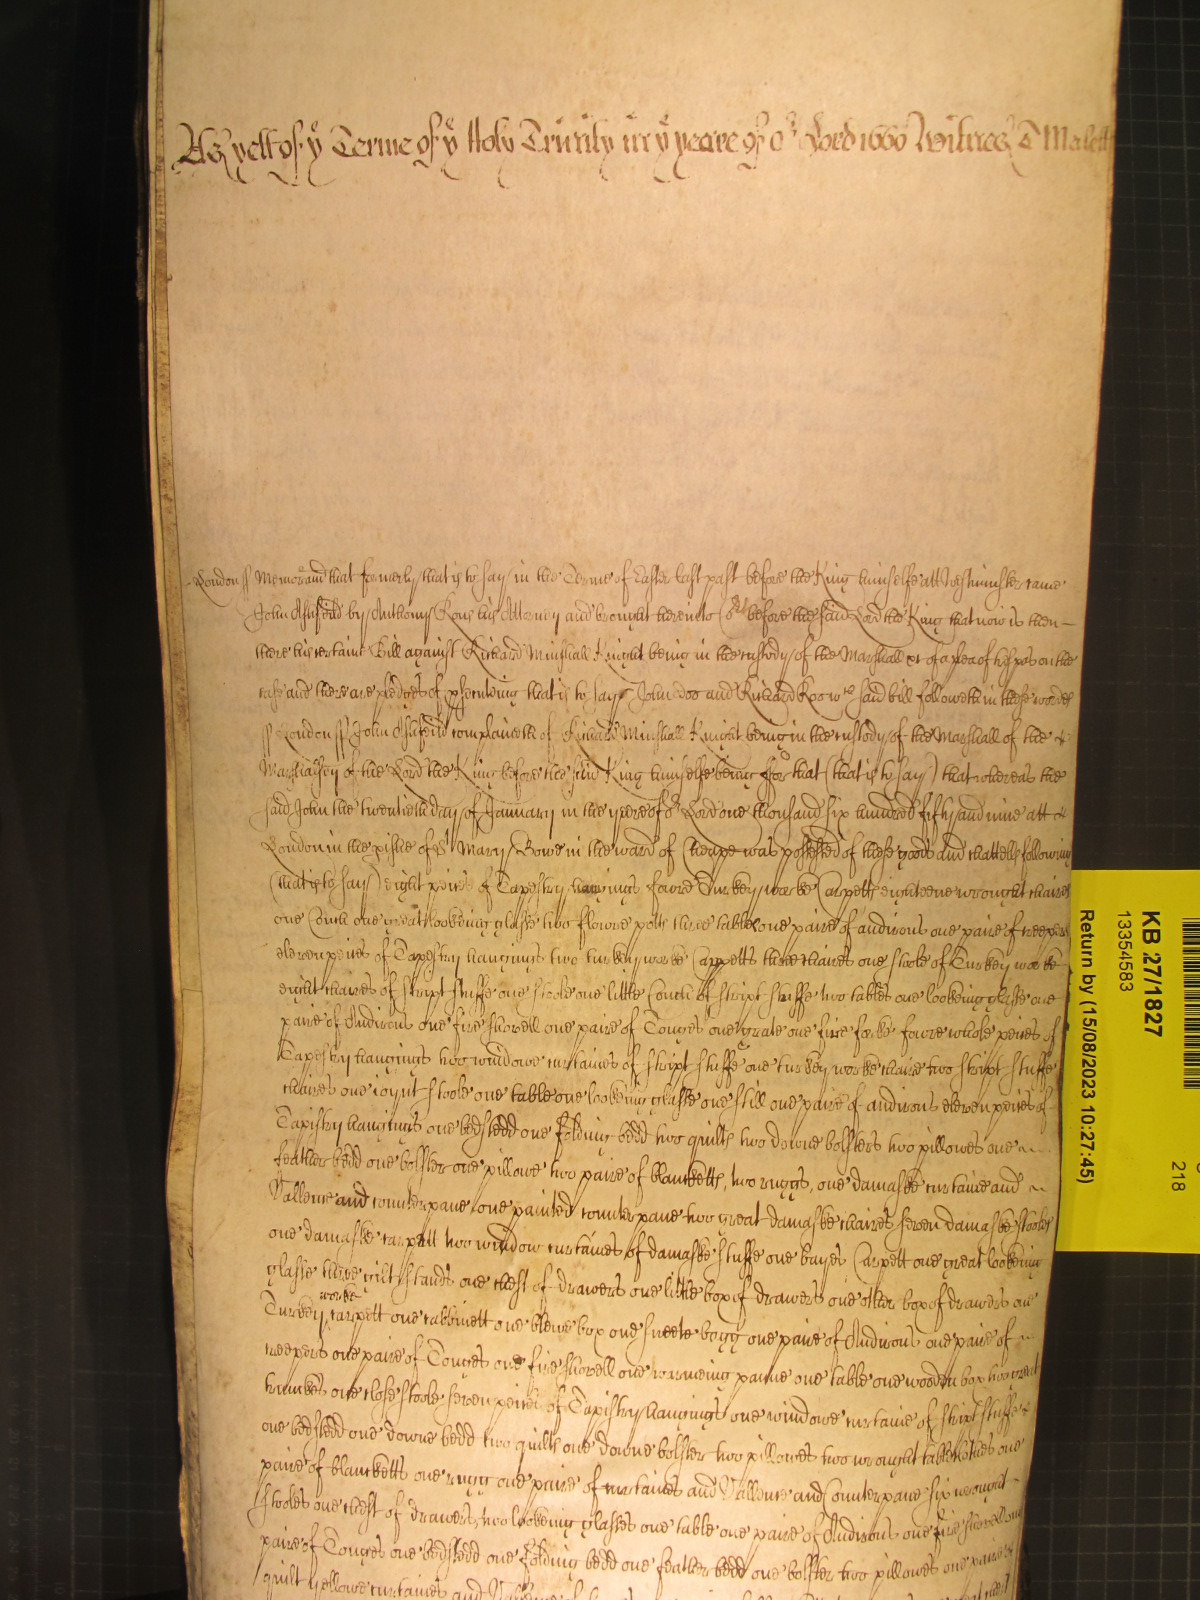 As yett of ye Terme of ye Holy Trinity in ye yeare of or Lord 1660 Witnes T Malett
London ss Memorand that formerly that is to say in the Terme of Easter last past before the King himselfe att Westminster came
John Ashfeild by Anthony Rous his Attorney and brought here into Crt before the said Lord the King that now is then
there his certaine Bill against Richard Minshall Knight being in the custody of the Marshall &c of a plea of trespas on the
case and there are pledges of psecuting that is to say John Doo and Richard Roo wch said bill followeth in these words
ss London ss John Ashfeild complaineth of Richard Minshall Knight being in the custody of the Marshall of the
Marshalsey of the Lord the King before the said King himselfe being For that (that is to say) that whereas the
said John the twentieth day of January in the yeare of or Lord one thousand six hundred fifty and nine att
London in the pishe of St Mary Bowe in the ward of Cheape was possessed of these goods and chattells following
(that is to say) eight peices of Tapestry hangings fowre Turkey worke Carpetts eighteene wrought chaires
one Couch one great lookeing glasse two flower potts three tables one paire of andirons one paire of creepers
eleven peices of Tapestry hangings two turkey worke Carpetts three chaires one stoole of Turkey worke
eight chaires of stript stuffe one stoole one little Couch of stript stuffe two tables one lookeing glasse one
paire of Andirons one fire shovell one paire of Tonges one grate one fire forke fowre whole peices of
Tapestry hangings two windowe curtaines of stript stuffe one turkey worke chaire two stript stuffe
chaires one ioynt stoole one table one lookeing glasse one still one paire of andirons eleven peices of
Tapistry hangings one bedstedd one folding bedd two quilts two downe bolsters two pillowes one
feather bedd one bolster one pillowe two paire of blancketts, two ruggs, one damaske curtaine and
Vallence and counterpane one painted counterpane two great damaske chaires seven damaske stooles
one damaske carpett two window curtaines of damaske stuffe one bayes Carpett one great lookeing
glasse three gilt stands one chest of drawers one little box of drawers one other box of drawers one
Turkey worke carpett one cabbinett one blewe box one sweete bagg one paire of Andirons one paire of
creepers one paire of Tonges one fire shovell one warmeing panne one table one wooden box two great
trunkes one close stoole seven peices of Tapistry hangings one windowe curtaine of stript stuffe
one bedstedd one downe bedd two quilts one downe bolster two pillowes two wrought tableclothes one
paire of blancketts one rugg one paire of curtaines and Vallence and Counterpane six wrought
stooles one chest of drawers two lookeing glasses one table one paire of Andirons one fire shovell one
paire of Tonges one bedstedd one folding bedd one feather bedd one bolster two pillowes one paire
quilt yellowe curtaines and
KB 27/1827
13354583
Return by (15/08/2023 10:27:45)
218